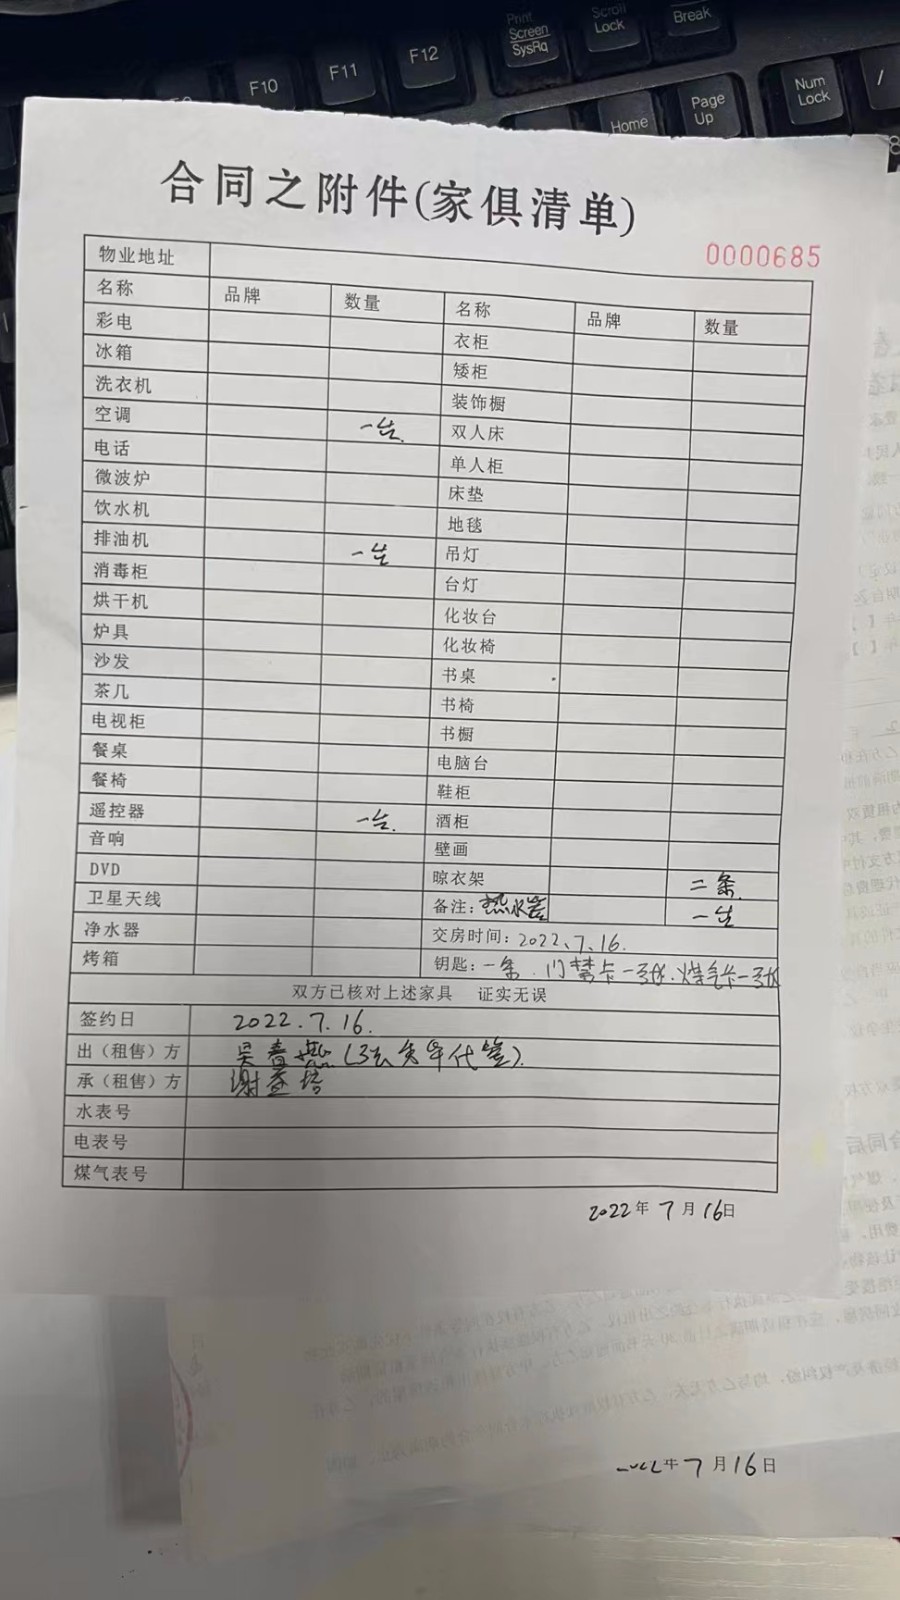 F10 F11 F12 Print Screen SysRq Scroll Lock Break
Home Page Up Num Lock /
合同之附件(家俱清单)
0000685
物业地址
名称 品牌 数量 名称 品牌 数量
彩电 衣柜
冰箱 矮柜
洗衣机 装饰橱
空调 一台. 双人床
电话 单人柜
微波炉 床垫
饮水机 地毯
排油机 一台 吊灯
消毒柜 台灯
烘干机 化妆台
炉具 化妆椅
沙发 书桌
茶几 书椅
电视柜 书橱
餐桌 电脑台
餐椅 鞋柜
遥控器 一台. 酒柜
音响 壁画
DVD 晾衣架 二条.
卫星天线 备注: 热水器 一台
净水器 交房时间: 2022.7.16.
烤箱 钥匙: 一条. 门禁卡一张. 燃气卡一张
双方已核对上述家具 证实无误
签约日 2022.7.16.
出（租售）方 吴春燕
承（租售）方
水表号
电表号
煤气表号
2022年 7月 16日
年 7月 16日